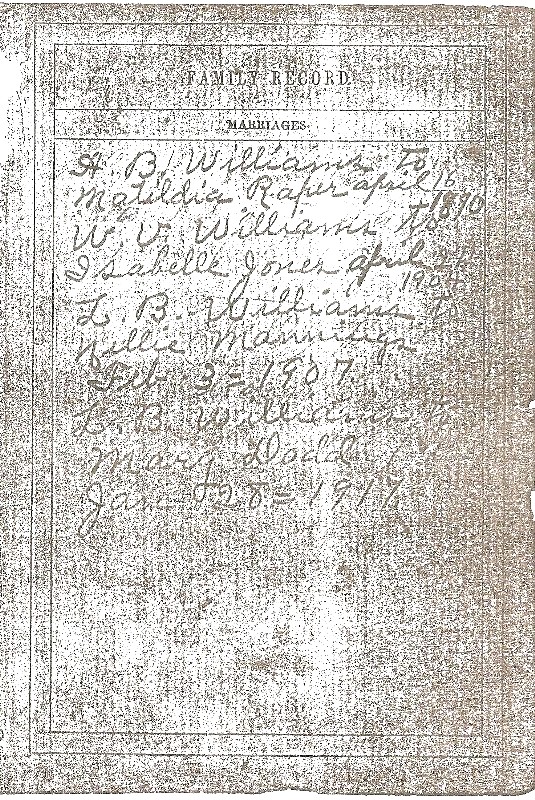 FAMILY RECORD
MARRIAGES
A. B. Williams to
Matildia Raper april 16
1870
W. V. Williams to
Isabelle Jones april
L. B. Williams to
Nellie
Feb 3 = 1907
L. B. Williams to
Mary Dodd
Jan 28 = 1917